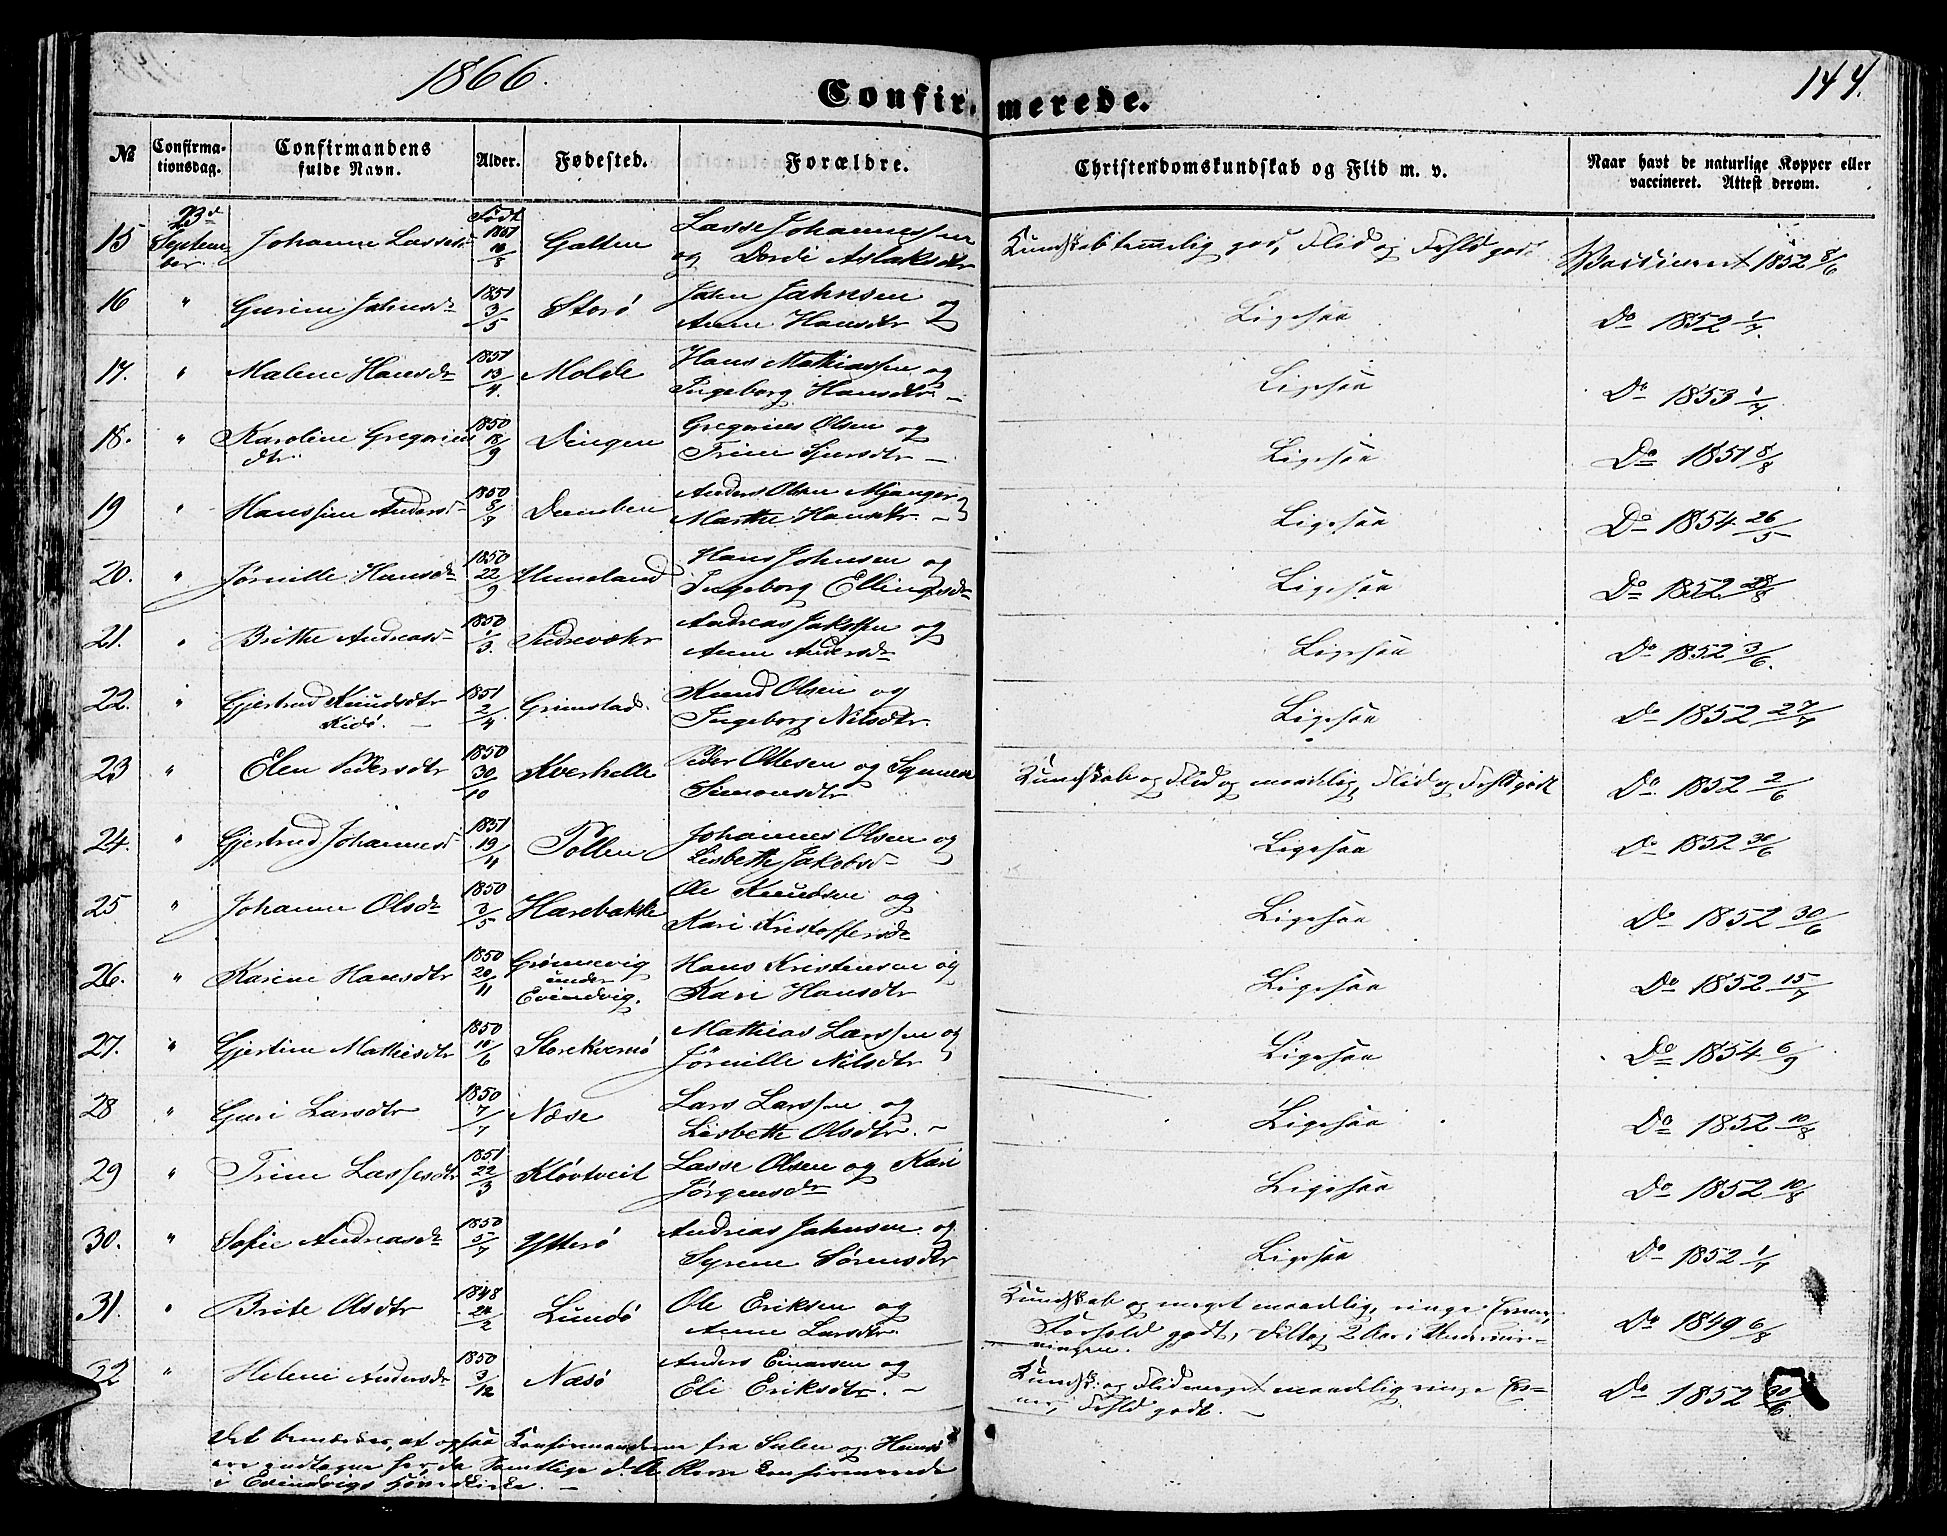 1866.
Confirmerede.
144.
№ Confirmationsdag. Confirmandens fulde Navn. Alder. Fødested. Forældre. Christendomskundskab og Flid m. v. Naar havt de naturlige Kopper eller vaccineret. Attest derom.
15 23d September Johanne Lassesdr Født 1851 10/8 Galten Lasse Johannessen og Dordi Aslaksdtr Kundskab temmelig god, Flid og Forhld godt Vaccineret 1852 8/6
16 " Gurine Jahnsdr 1851 3/5 Storø Jahn Jahnsen og Anne Hansdtr Ligesaa Do 1852 1/7.
17. " Malene Hansdr 1851 13/4. Molde Hans Mathiassen og Ingeborg Hansdtr. – Ligesaa Do 1853 1/7.
18. " Karoline Gregorius dtr 1850 18/9 Dingen Gregorius Olsen og Trine Sjursdtr – Ligesaa Do 1851 8/8
19 " Hanssine Andersdr 1850 8/7 Anders Olsen Mjanger Marthe Hansdtr. – Ligesaa Do 1854 26/5
20. " Jørnille Hansdr 1850 22/9 Huneland Hans Johnsen og Ingeborg Ellingsdr Ligesaa Do 1852 28/8
21. " Brithe Andreasdr 1850 1/3. Andreas Jakssen og Anne Andersdr Ligesaa Do 1852 3/6.
22. " Gjertrud Knudsdtr Kidø. – 1851 2/4 Grimstad. Knud Olsen og Ingeborg Nilsdtr. Ligesaa Do 1852 27/7
23 " Elen Pedersdtr 1850 30/10 Kverhelle Peder Ottesen og Synneve Simonsdtr Kundskab og Flid og maadelig, Flid og Forhld godt Do. 1852 2/6
24. " Gjertrud Johannesd 1851 19/4 Pollen Johannes Olsen og Lisbethe Jakobsd– Ligesaa Do 1852 30/6
25 " Johanne Olsdr 1850 3/5 Harebakke Ole Knudsen og Kari Kristoffersdr Ligesaa Do 1852 30/6
26. " Karine Hansdtr 1850 20/11 Grønevig under Evindvig. Hans Kristensen og Kari Hansdtr Ligesaa Do 1852 15/7
27. " Gjertine Mathisdtr 1850 10/6 Storekvernø Mathias Larssen og Jørnille Nilsdtr Ligesaa Do 1854 6/9
28 " Guri Larsdtr 1850 7/7 Næse Lars Larssen og Lisbethe Olsdtr. – Ligesaa Do 1852 10/8
29 " Trine Lassesdtr 1851 22/3 Kløvtveit Lasse Olsen og Kari Jørgensdr Ligesaa Do 1852 10/8
30. " Sofie Andreasdr 1850 5/7 Ytterø Andreas Jahnsen og Syrene Sørensdtr Ligesaa Do 1852 1/7
31. " Brite Olsdtr 1848 24/2 Lundø Ole Eriksen og Anne Larsdtr. Kundskab og meget maadelig, ringe Evner, Forhold godt, Deltog 2 Aar i Do 1849 6/8
32 " Helene Andersdr 1850 3/12 Næsø Anders Einarsen og Eli Eriksdtr. – Kundsk. og Flid meget maadelig ringe Evner, Forhld godt. – Do 1852 30/6.
Det bemærkes, at ogsaa Konfirmanderne fra Sulen og Husø
ere indtagne her da samtlige d. A. bleve konfirmerede
i Evindvigs Hovedkirke. –